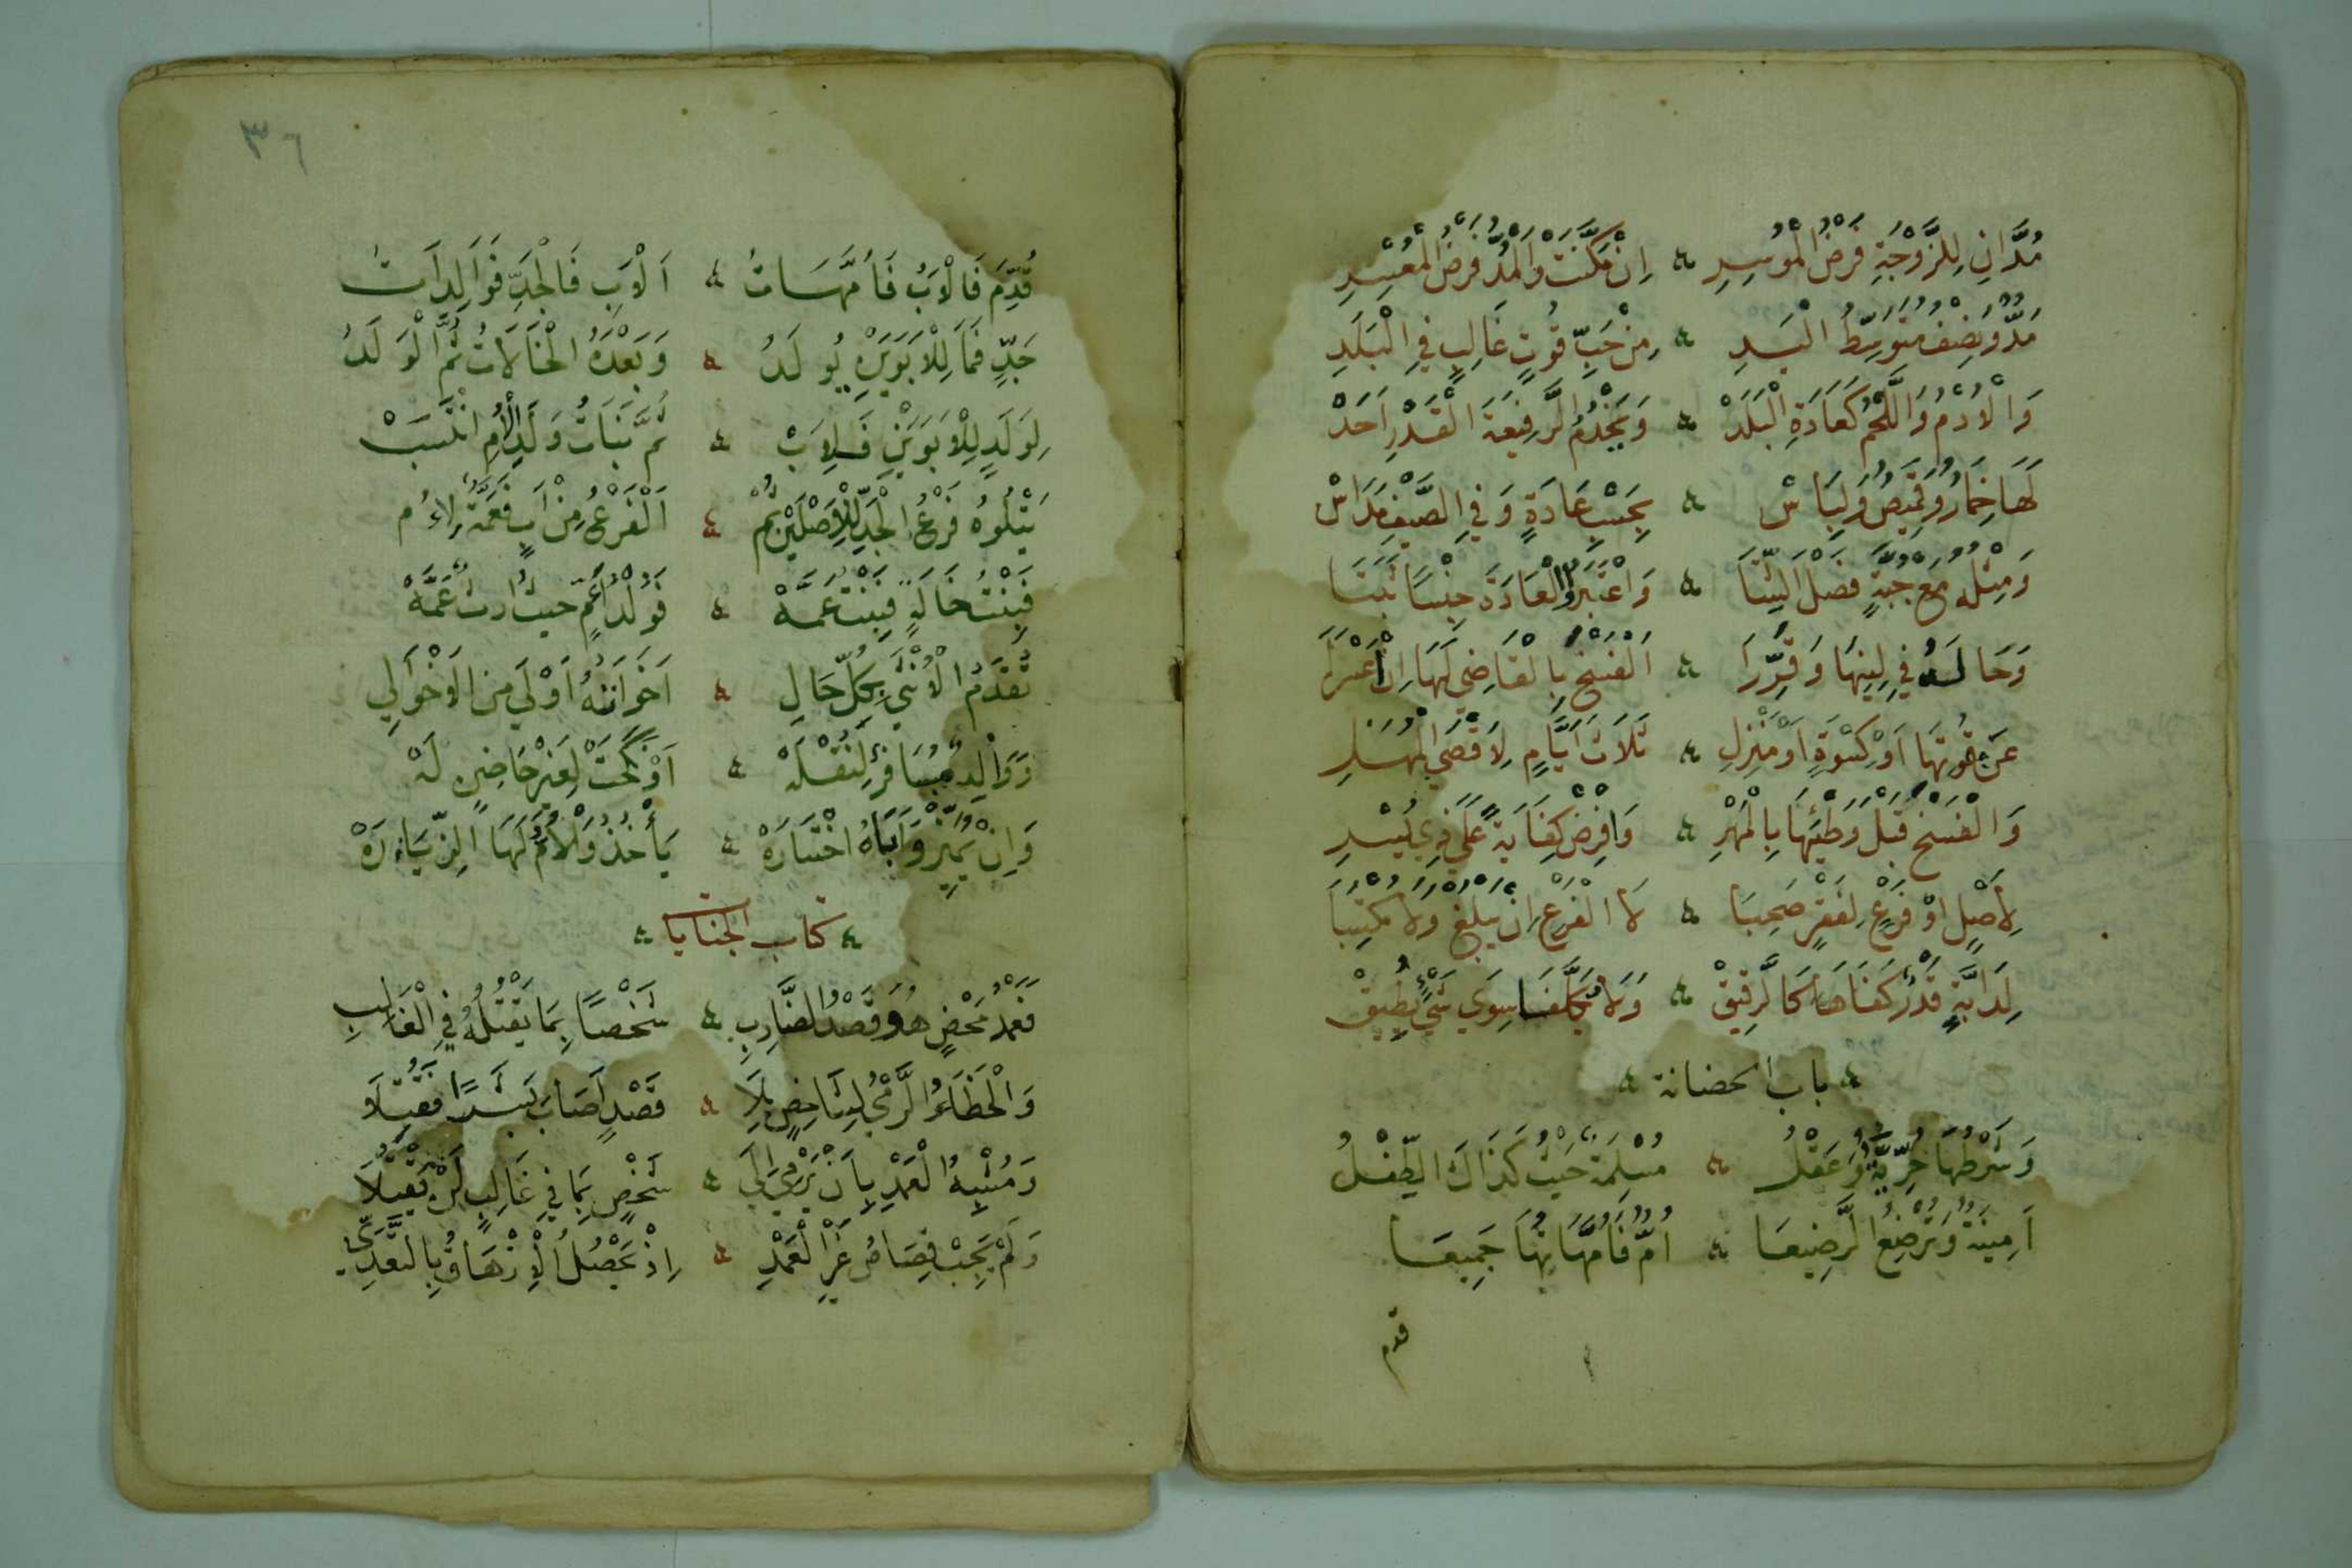 مُدَّانِ لِلزَّوْجَةِ فَرْضُ الْمُوسِرِ ۞ اِنْ مَكَّنَتْ وَالْمُدُّ فَرْضُ الْمُعْسِرِ
مُدٌّ وَنِصْفٌ مُتَوَسِّطُ الْيَدِ ۞ مِنْ حَبِّ قُوتٍ غَالِبٍ فِي الْبَلَدِ
وَالْاُدْمُ وَاللَّحْمُ كَعَادَةِ الْبَلَدْ ۞ وَيَخْدُمُ الرَّفِيعَةَ الْقَدْرِ اَحَدْ
لَهَا خِمَارٌ وَقَمِيصٌ وَلِبَاسْ ۞ بِحَسْبِ عَادَةٍ وَفِي الصَّيْفِ مَدَاسْ
وَمِثْلُهُ مَعْ جُبَّةٍ فَصْلَ الشِّتَا ۞ وَاعْتَبَرُوا الْعَادَةَ جِنْسًا ثَبَتَا
وَحَالَهُ فِي لِينِهَا وَقَرِّرَا ۞ اَلْفَسْخَ بِالْقَاضِي لَهَا اِنْ اَعْسَرَا
عَنْ قُوتِهَا اَوْ كِسْوَةٍ اَوْ مَنْزِلِ ۞ ثَلَاثَ اَيَّامٍ لِاَقْصَى الْمُهَلِ
وَالْفَسْخُ قَبْلَ وَطْئِهَا بِالْمَهْرِ ۞ وَافْرِضْ كِفَايَةً عَلَى ذِي يُسْرِ
لِاَصْلٍ اَوْ فَرْعٍ لِفَقْرٍ صَحِبَا ۞ لَا الْفَرْعِ اِنْ يَبْلُغْ وَلَا مُكْتَسِبَا
لِدَابَّةٍ قَدْرُ كَفَاهَا كَالرَّقِيقْ ۞ وَلَا يُكَلَّفَا سِوَى شَيْءٍ يُطِيقْ
۞ باب الحضانة ۞
وَشَرْطُهَا حُرِّيَّةٌ وَعَقْلُ ۞ مُسْلِمَةٌ حَيْثُ كَذَاكَ الطِّفْلُ
اَمِينَةٌ وَتُرْضِعُ الرَّضِيعَا ۞ اُمٌّ فَاُمَّهَاتُهَا جَمِيعَا
قدم
٣٦
قُدِّمَ فَالْاَبُ فَاُمَّهَاتُ ۞ اَلْاَبِ فَالْجَدِّ فَوَالِدَاتُ
جَدٍّ فَمَا لِلْاَبَوَيْنِ يُولَدُ ۞ وَبَعْدَهُ الْخَالَاتُ ثُمَّ الْوَلَدُ
لِوَلَدٍ لِلْاَبَوَيْنِ فَلِاَبْ ۞ ثُمَّ بَنَاتُ وَلَدِ الْاُمِّ انْتَسَبْ
يَتْلُوهُ فَرْعُ الْجَدِّ لِلْاَصْلَيْنِ ثُمْ ۞ اَلْفَرْعُ مِنْ اَبٍ فَعَمَّةٌ لِاُمْ
فَبِنْتُ خَالَةٍ فَبِنْتُ عَمَّهْ ۞ فَوُلْدُ عَمٍّ حَيْثُ اِرْثٌ عَمَّهْ
تَقَدَّمُ الْاُنْثَى بِكُلِّ حَالِ ۞ اَخَوَاتُهُ اَوْلَى مِنَ الْاَخْوَالِ
وَوَالِدٌ مُسَافِرٌ لِنُقْلَهْ ۞ اَوْ نُكِحَتْ لِغَيْرِ حَاضِنٍ لَهْ
وَاِنْ يُمَيِّزْ وَاَبَاهُ اخْتَارَهْ ۞ يَأْخُذُهُ وَالْاُمُّ لَهَا الزِّيَارَهْ
۞ كتاب الجنايا ۞
فَعَمْدُ مَحْضٍ هُوَ قَصْدُ الضَّارِبِ ۞ شَخْصًا بِمَا يَقْتُلُهُ فِي الْغَالِبِ
وَالْخَطَاءُ الرَّمْيُ لِشَاخِصٍ بِلَا ۞ قَصْدٍ اَصَابَ بَشَرًا فَقَتَلَا
وَمُشْبِهُ الْعَمْدِ بِاَنْ يَرْمِي اِلَى ۞ شَخْصٍ بِمَا فِي غَالِبٍ لَنْ يَقْتُلَا
وَلَمْ يَجِبْ قِصَاصُ غَيْرِ الْعَمْدِ ۞ اِذْ يَحْصُلُ الْاِزْهَاقُ بِالتَّعَدِّي